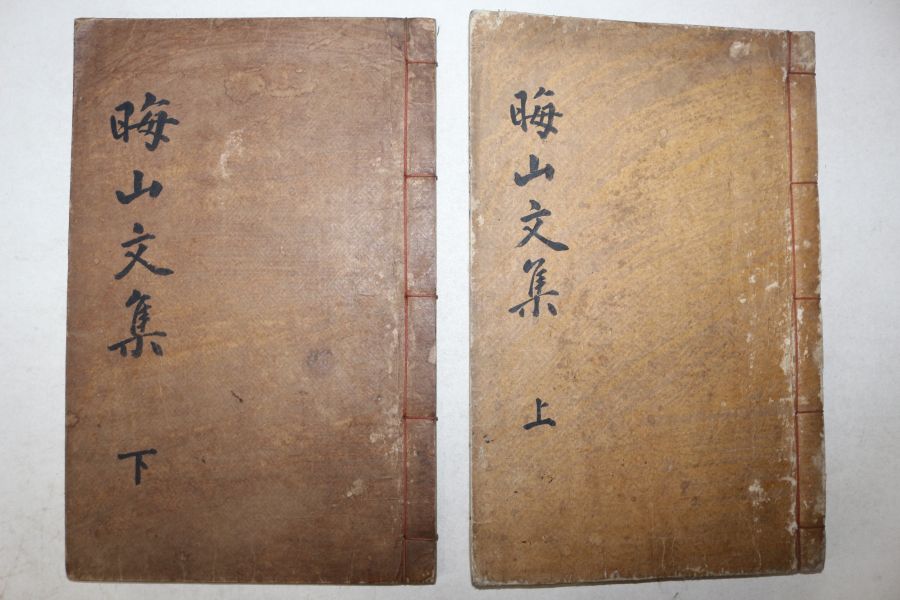 晦山文集 上
晦山文集 下